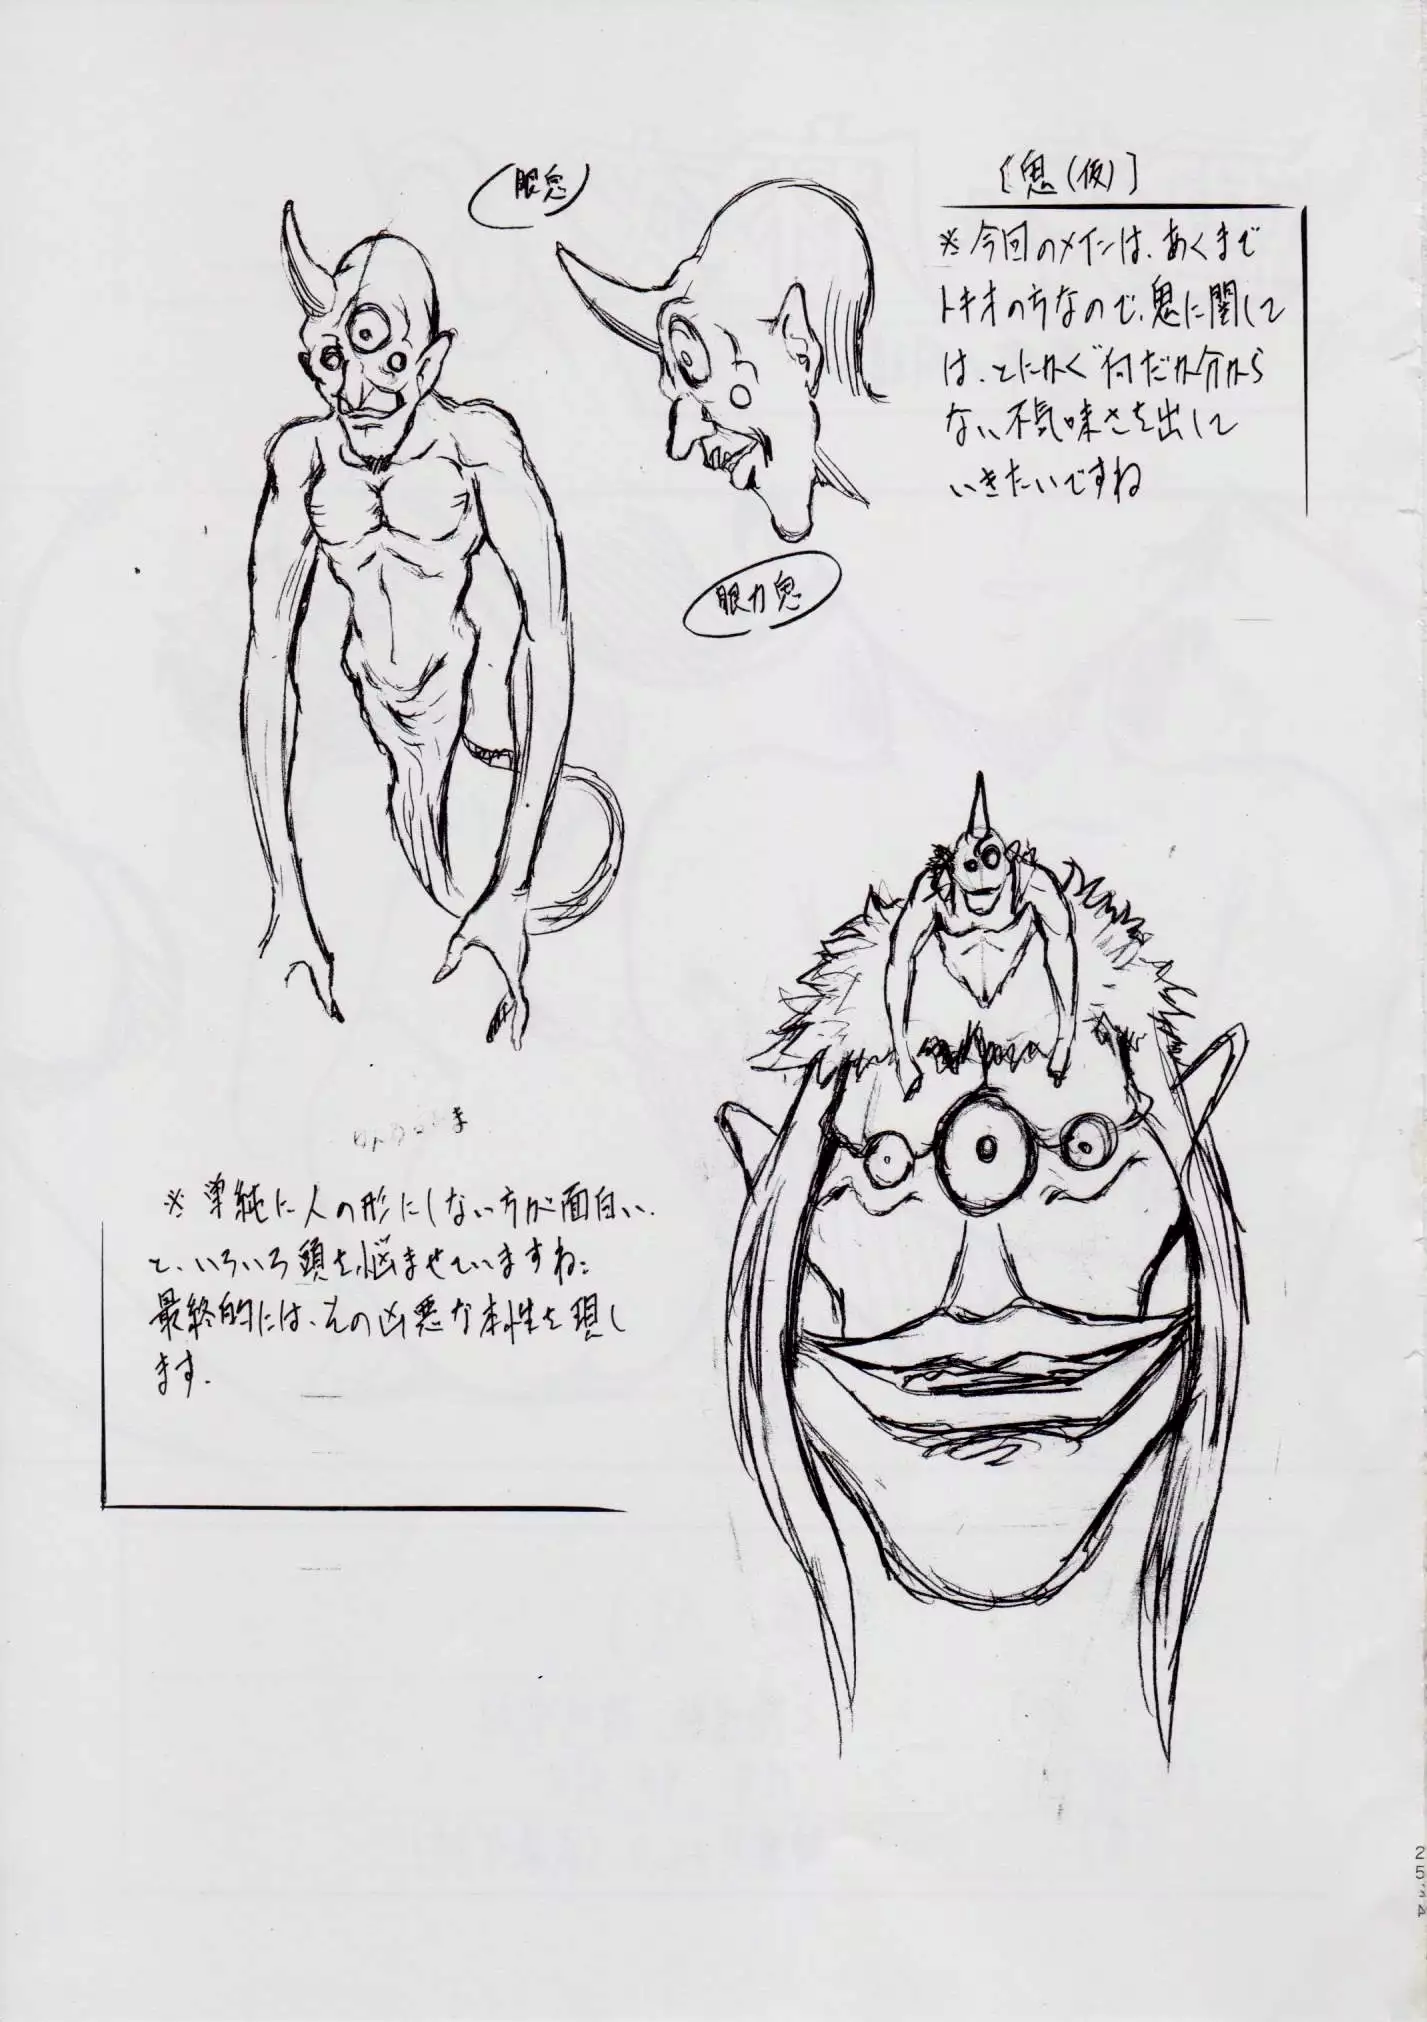 [鬼(仮)]
※今回のメインは、あくまで
トキオの方なので、鬼に関して
は、とにかく何だか分から
ない不気味さを出して
いきたいですね
(眼鬼)
眼力鬼
※単純に人の形にしない方が面白い、
と、いろいろ頭を悩ませていますね
最終的には、その凶悪な本性を現し
ます.